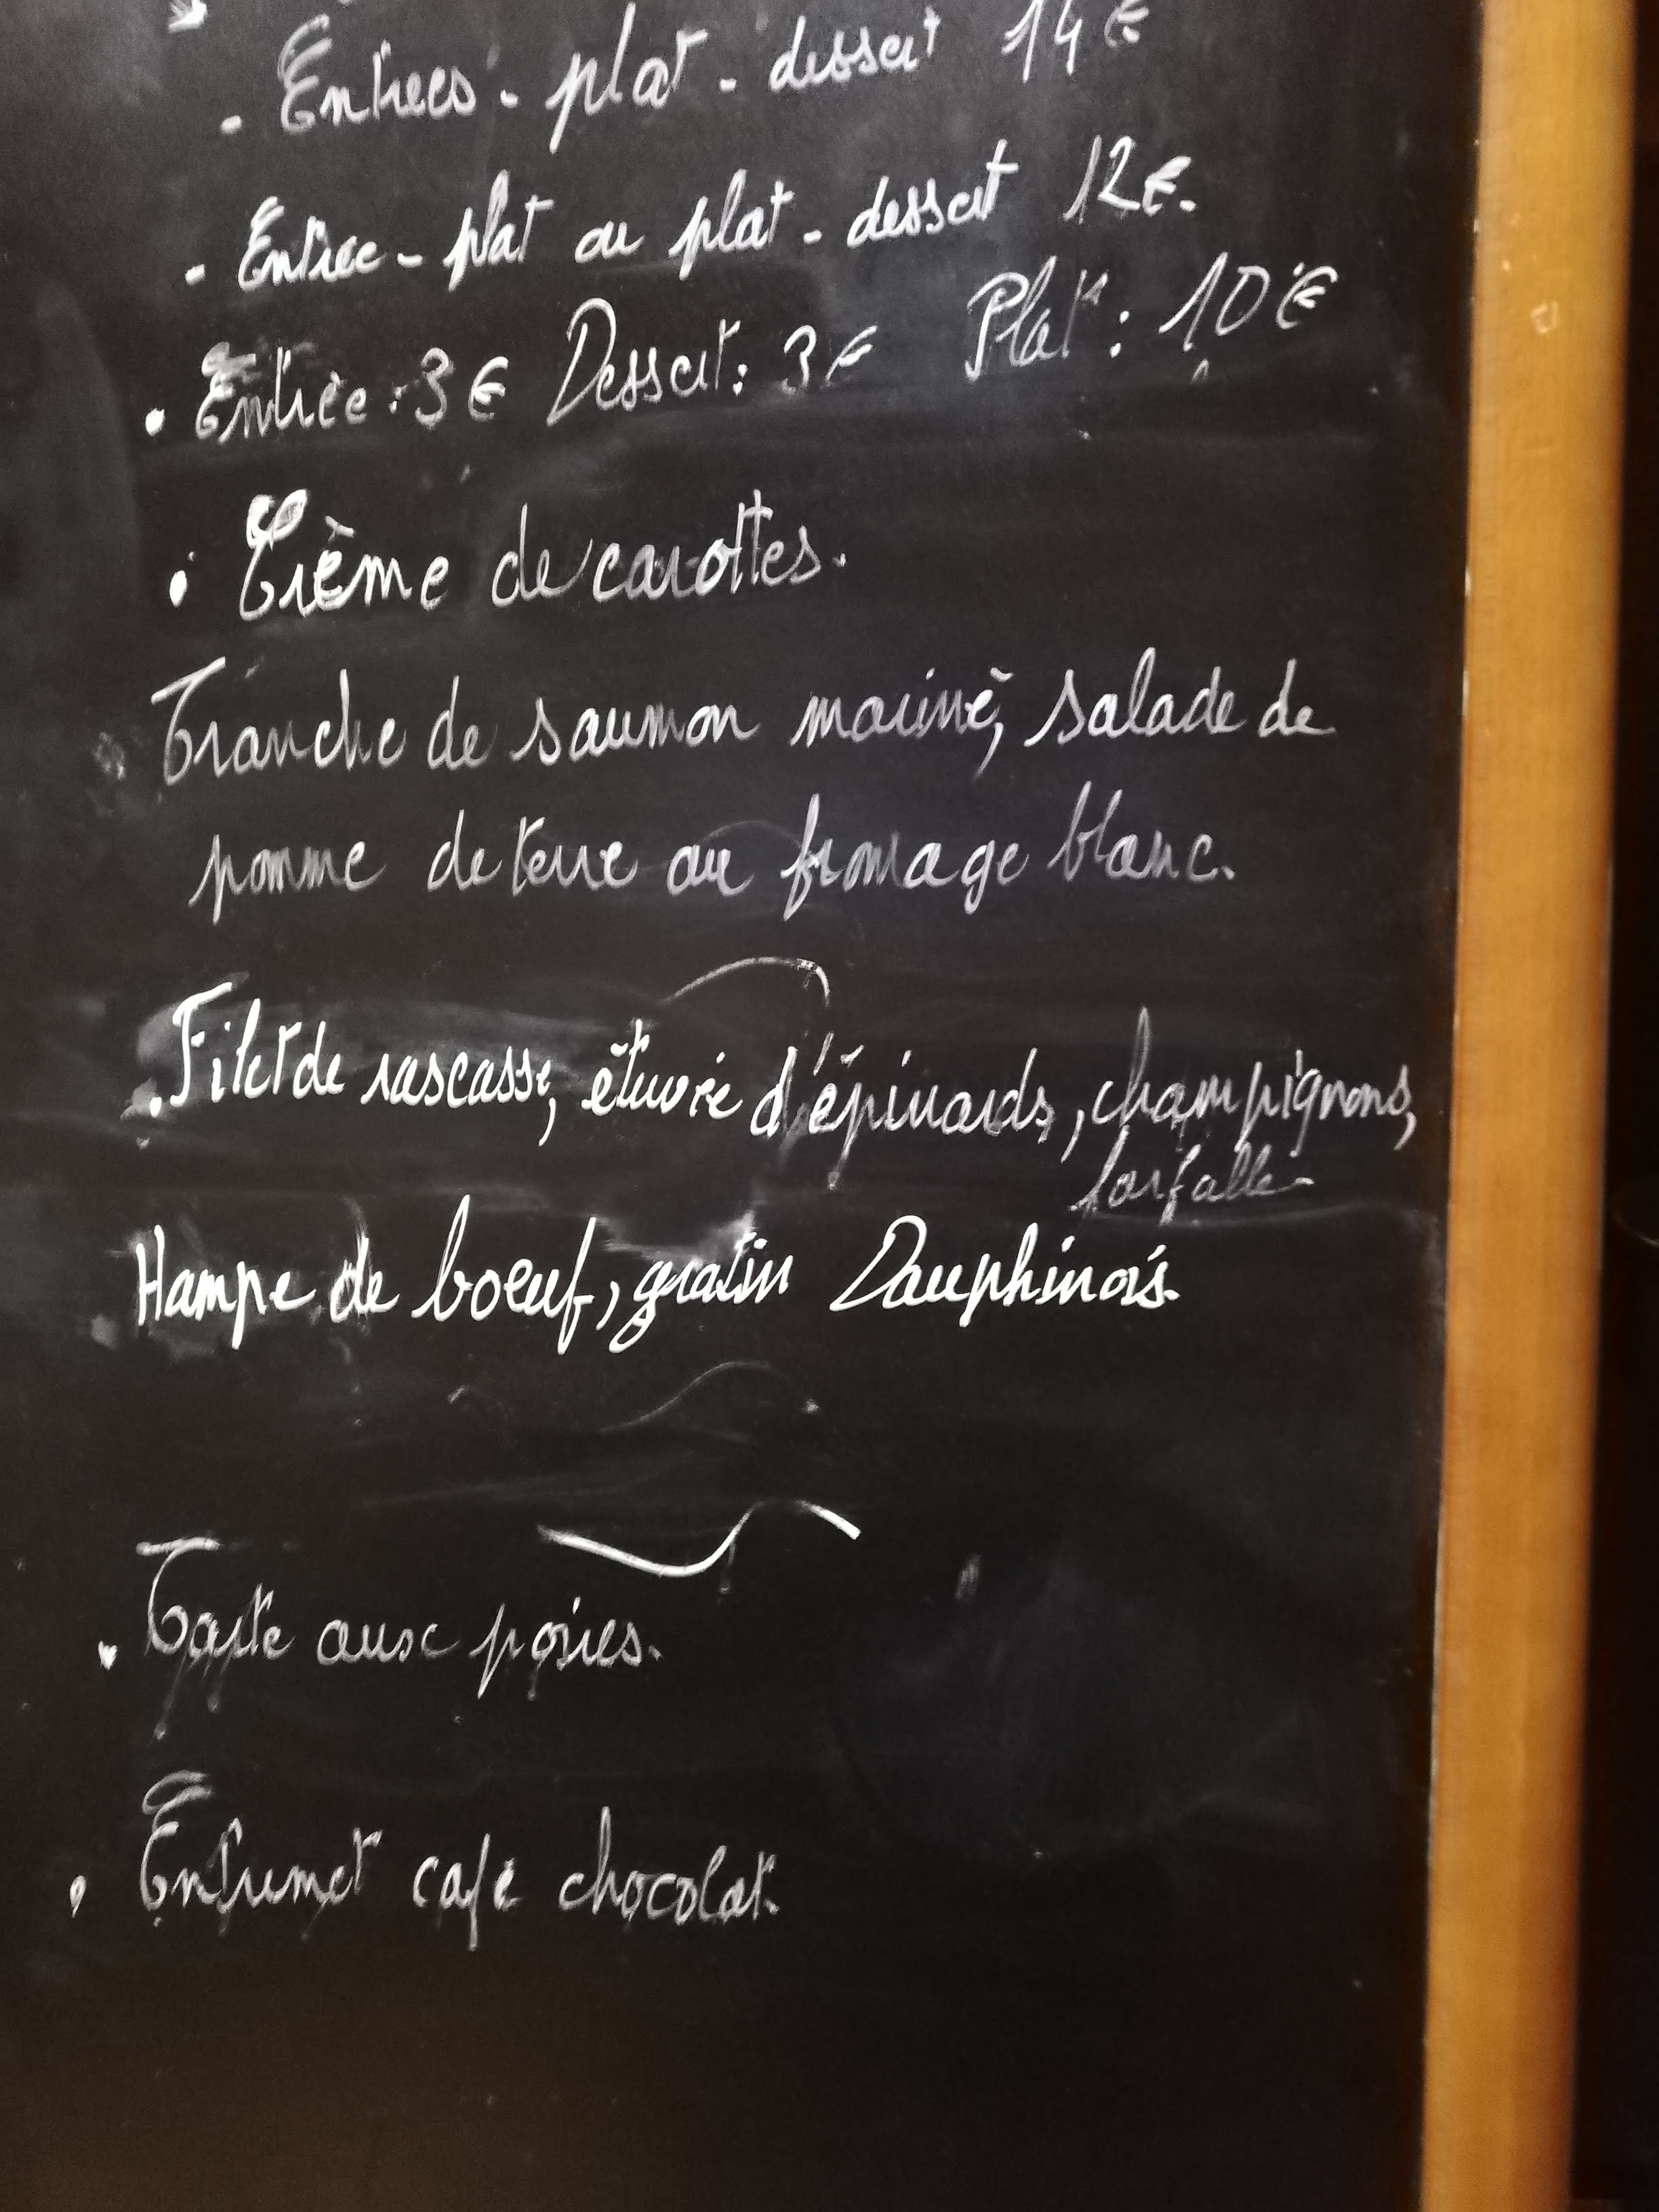 - Entrées - plat - dessert 14 €
- Entrée - plat ou plat - dessert 12 €.
• Entrée : 3 € Dessert : 3 € Plat : 10 €
• Crème de carottes.
Tranche de saumon mariné, salade de
pomme de terre au fromage blanc.
. Filet de rascasse, étuvée d'épinards, champignons,
farfalle.
Hampe de boeuf, gratin Dauphinois.
. Tarte aux poires.
. Entremet café chocolat.